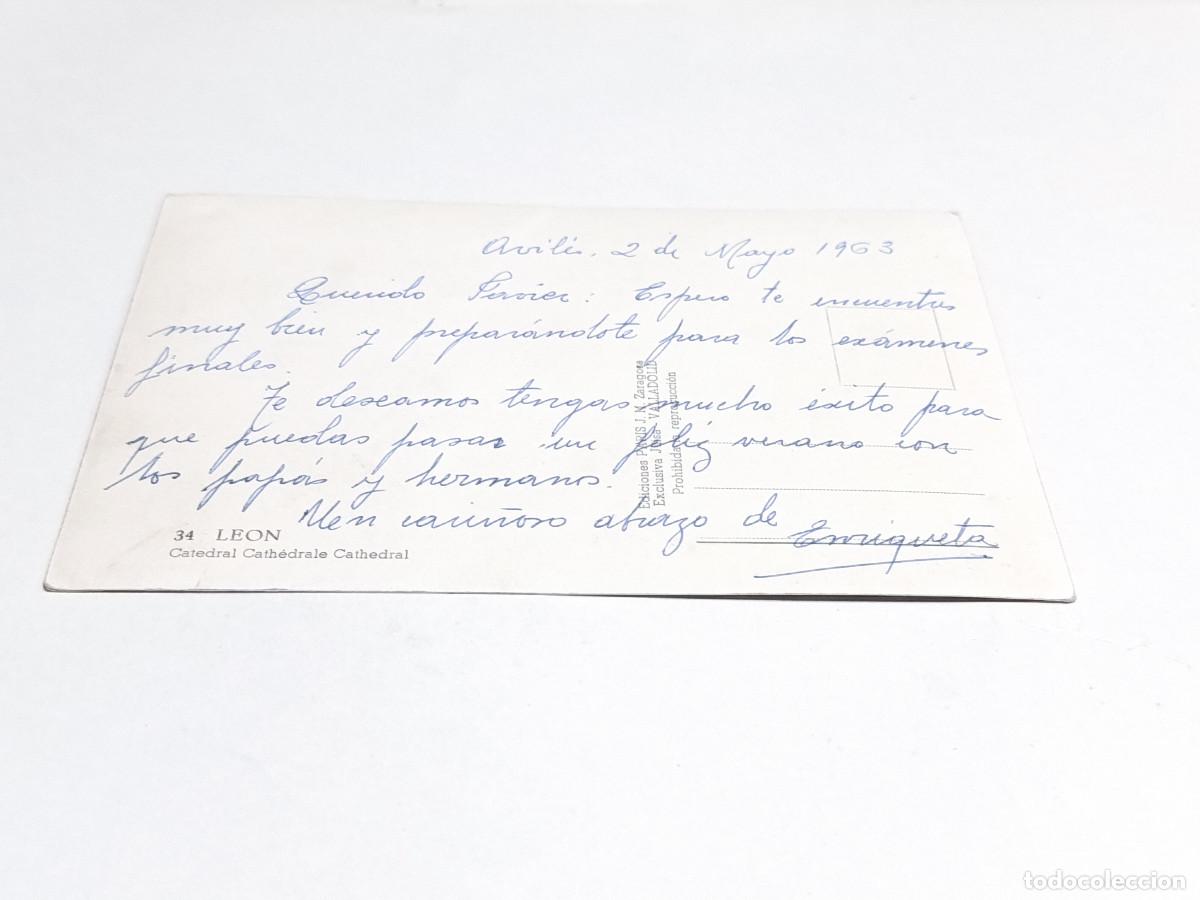 Avilés, 2 de Mayo 1963
Querido Javier: Espero te encuentres
muy bien y preparándote para los exámenes
finales.
Te deseamos tengas mucho éxito para
que puedas pasar un feliz verano con
los papás y hermanos.
Un cariñoso abrazo de
Enriqueta
Ediciones PARIS J.M. Zaragoza
Exclusiva VALLADOLID
Prohibida reproducción
34 LEON
Catedral Cathédrale Cathedral
todocoleccion